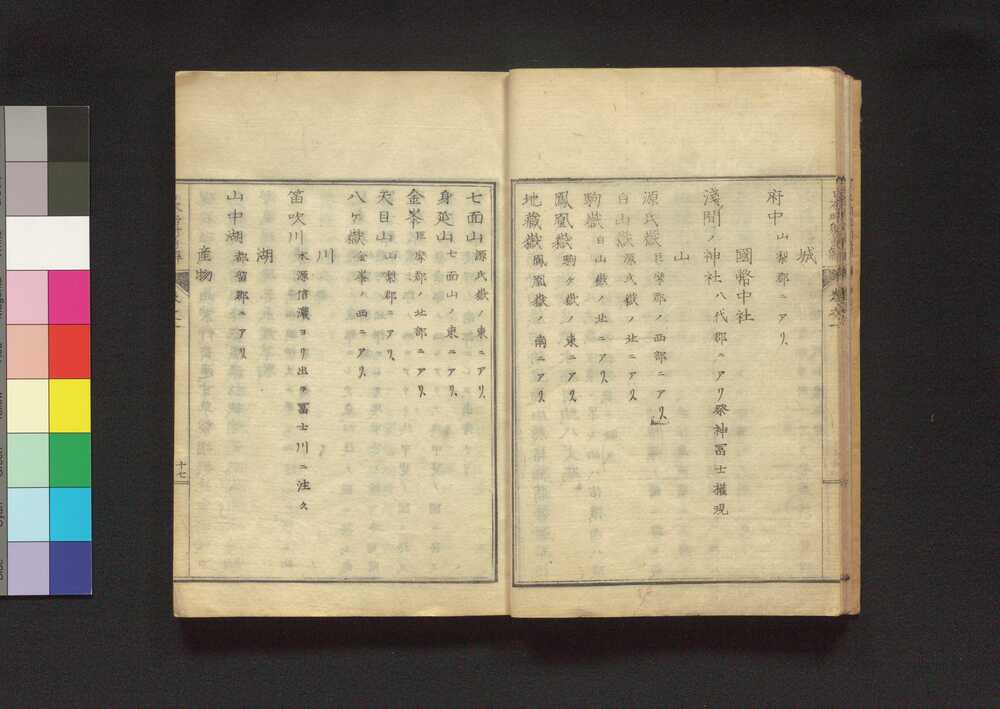 城
府中 山梨郡ニアリ
國幣中社
淺間ノ神社 八代郡ニアリ祭神冨士權現
山
源氏嶽 巨摩郡ノ西部ニアリ
白山嶽 源氏嶽ノ北ニアリ
駒嶽 白山嶽ノ北ニアリ
鳳凰嶽 駒ケ嶽ノ東ニアリ
地藏嶽 鳳凰嶽ノ南ニアリ
七面山 源氏嶽ノ東ニアリ
身延山 七面山ノ東ニアリ
金峯 巨摩郡ノ北部ニアリ
天目山 山梨郡ニアリ
八ヶ嶽 金峯ノ西ニアリ
川
笛吹川 水源信濃ヨリ出テ冨士川ニ注ク
湖
山中湖 都留郡ニアリ
産物
十七